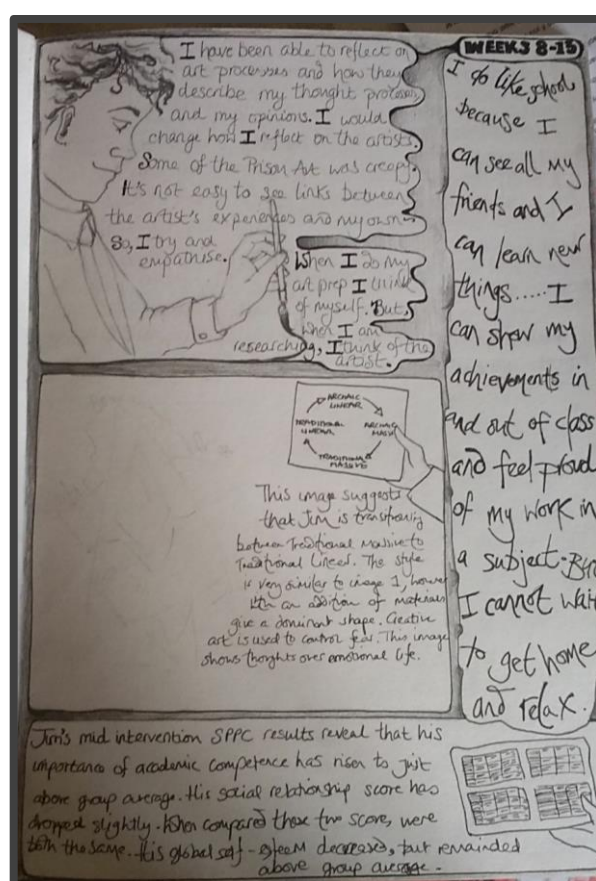 WEEKS 8-15
I have been able to reflect on
art processes and how they
describe my thought process,
and my opinions. I would
change how I reflect on the artists.
Some of the Prison Art was creepy.
It's not easy to see links between
the artist's experiences and my own.
So, I try and
empathise.
When I do my
art prep I think
of myself. But,
when I am
researching, I think of the
artist.
I do like school
because I
can see all my
friends and I
can learn new
things.....I
can show my
achievements in
and out of class
and feel proud
of my work in
a subject. But
I cannot wait
to get home
and relax.
ARCHAIC
LINEAR
ARCHAIC
MASSIVE
TRADITIONAL
MASSIVE
TRADITIONAL
LINEAR
This image suggests
that Jim is transitioning
between Traditional Massive to
Traditional Linear. The style
is very similar to image 1, however
with an addition of materials
give a dominant shape. Creative
art is used to control fear. This image
shows thorghts over emotional life.
Jim's mid intervention SPPC results reveal that his
importance of academic competence has risen to just
above group average. His social relationship score has
dropped slightly. When compared these two score, were
both the same. His global self-esteem decreased, but remainded
above group average.